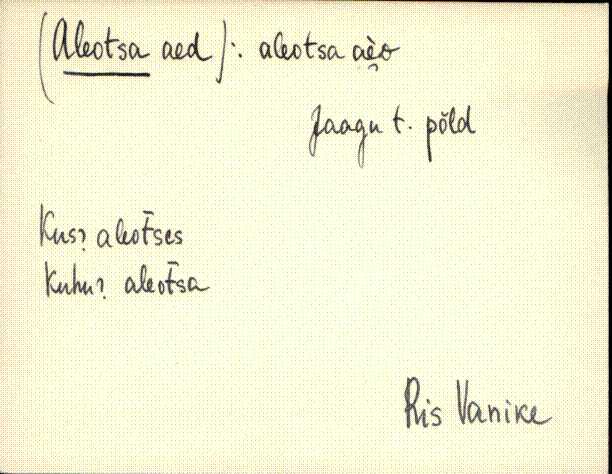 (Aleotsa aed): aleotsa aèo
Jaagu t. põld
Kus? aleot̄ses
Kuhu? aleot̄sa
Ris Vanike